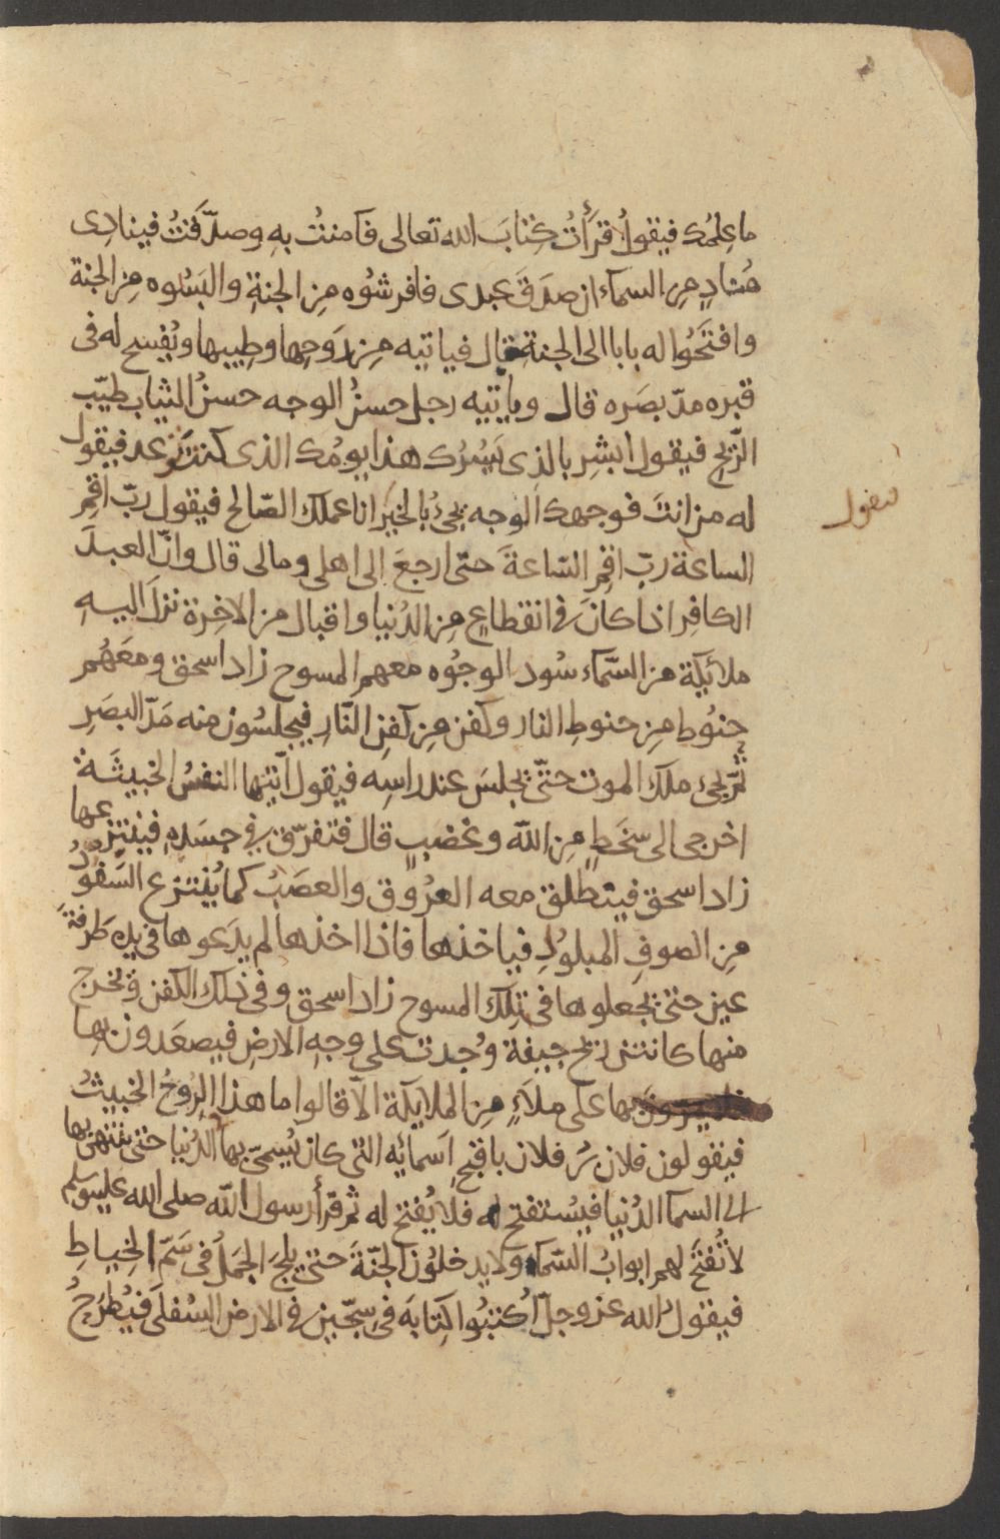 ما علمك فيقولُ قرَأتُ كِتابَ الله تعالى فآمنتُ بهِ وصدّقتُ فينادى
مُنادٍ مِن السماء ان صدَقَ عبدى فافرشُوه مِن الجنةِ والبَسُوه مِن الجنة
وافتَحُوا له بابا الى الجنةِ قال فياتيه مِن رَوحِها وطِيبها ويُفسح له فى
قبره مدّ بصَره قال وياتيه رجل حسنُ الوجه حسنُ الثياب طيّب
الرّيح فيقول ابشِر بالذى يَسُرّك هذا يومُك الذى كنتَ تُوعد فيقول
له من انتَ فوجهك الوجه يجئُ بالخَير انا عملك الصّالح فيقول ربّ اقمِ
فيقول
الساعة ربّ اقم السّاعةَ حتّى ارجعَ الى اهلى ومالى قال وانّ العبدَ
الكافِر اذا كانَ فى انقطاعٍ مِن الدُنيا واقبال من الاخِرة نزلَ اليهِ
ملائِكة من السّماء سُود الوجوُه معهم المسوح زاد اسحق ومعَهُم
حنُوط مِن حنوطِ النار وكفن مِن كفنِ النّارِ فيجلسُون منه مَدّ البصَرِ
ثمّ يجئ ملك الموت حتّى يجلسَ عند راسِه فيقول ايّتها النفسُ الخبيثَة
اخرجى الى سخَطٍ مِن اللّه وغضبٍ قال فتفرّق فى جسَدِهِ فينتزعها
زاد اسحق فيتطلق معه العرُوق والعصَبُ كما يُنتزع السَفّودُ
مِن الصوفِ المبلولِ فياخذها فاذا اخذها لم يدَعوها فى يدِهِ طَرفةَ
عين حتىّ يجعلوها فى تِلك المسوح زاد اسحق وفى ذلك الكفن وتخرج
منها كانتنِ ريح جيفة وُجدت على وجهِ الارضِ فيصعَدون بها
بها على ملاَءٍ مِن الملايكة الاّ قالوا ما هذا الرِوحُ الخبيثُ
فيقولون فلان بن فلان باقبَح اَسمائِه التّى كان يُسمىّ بها الدُنيا حتى ينتهىَ بها
الى السما الدُنيا فيُستفتح له فلا يُفتح له ثم قرأ رسول اللّه صلى الله عليه وسلم
لا تُفتَّح لهم ابوابُ السّماء ولا يدخلوُن الجنّةَ حتىّ يلِجَ الجَملُ فى سَمّ الخِياطِ
فيقولُ الله عز وجلّ اُكتبُوا كِتابَهَ فى سِجّين فى الارض السُفلَى فيُطرَحُ